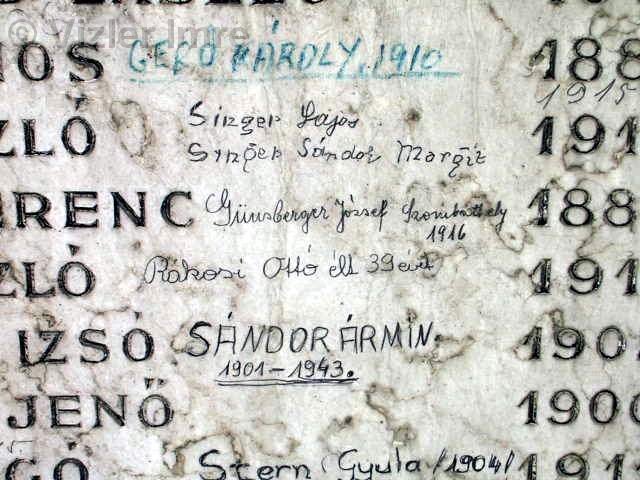 © Vizler Imre
NOS GERŐ KÁROLY, 1910 188
1915
ZLÓ Singer Lajos 191
Singer Sándor Margit
ERENC Günsberger József Szombathely 188
1916
ZLÓ Rákosi Ottó élt 39 évet 191
IZSÓ SÁNDOR ÁRMIN. 190
1901-1943.
JENŐ 190
GÓ Stern Gyula /1904/ 191